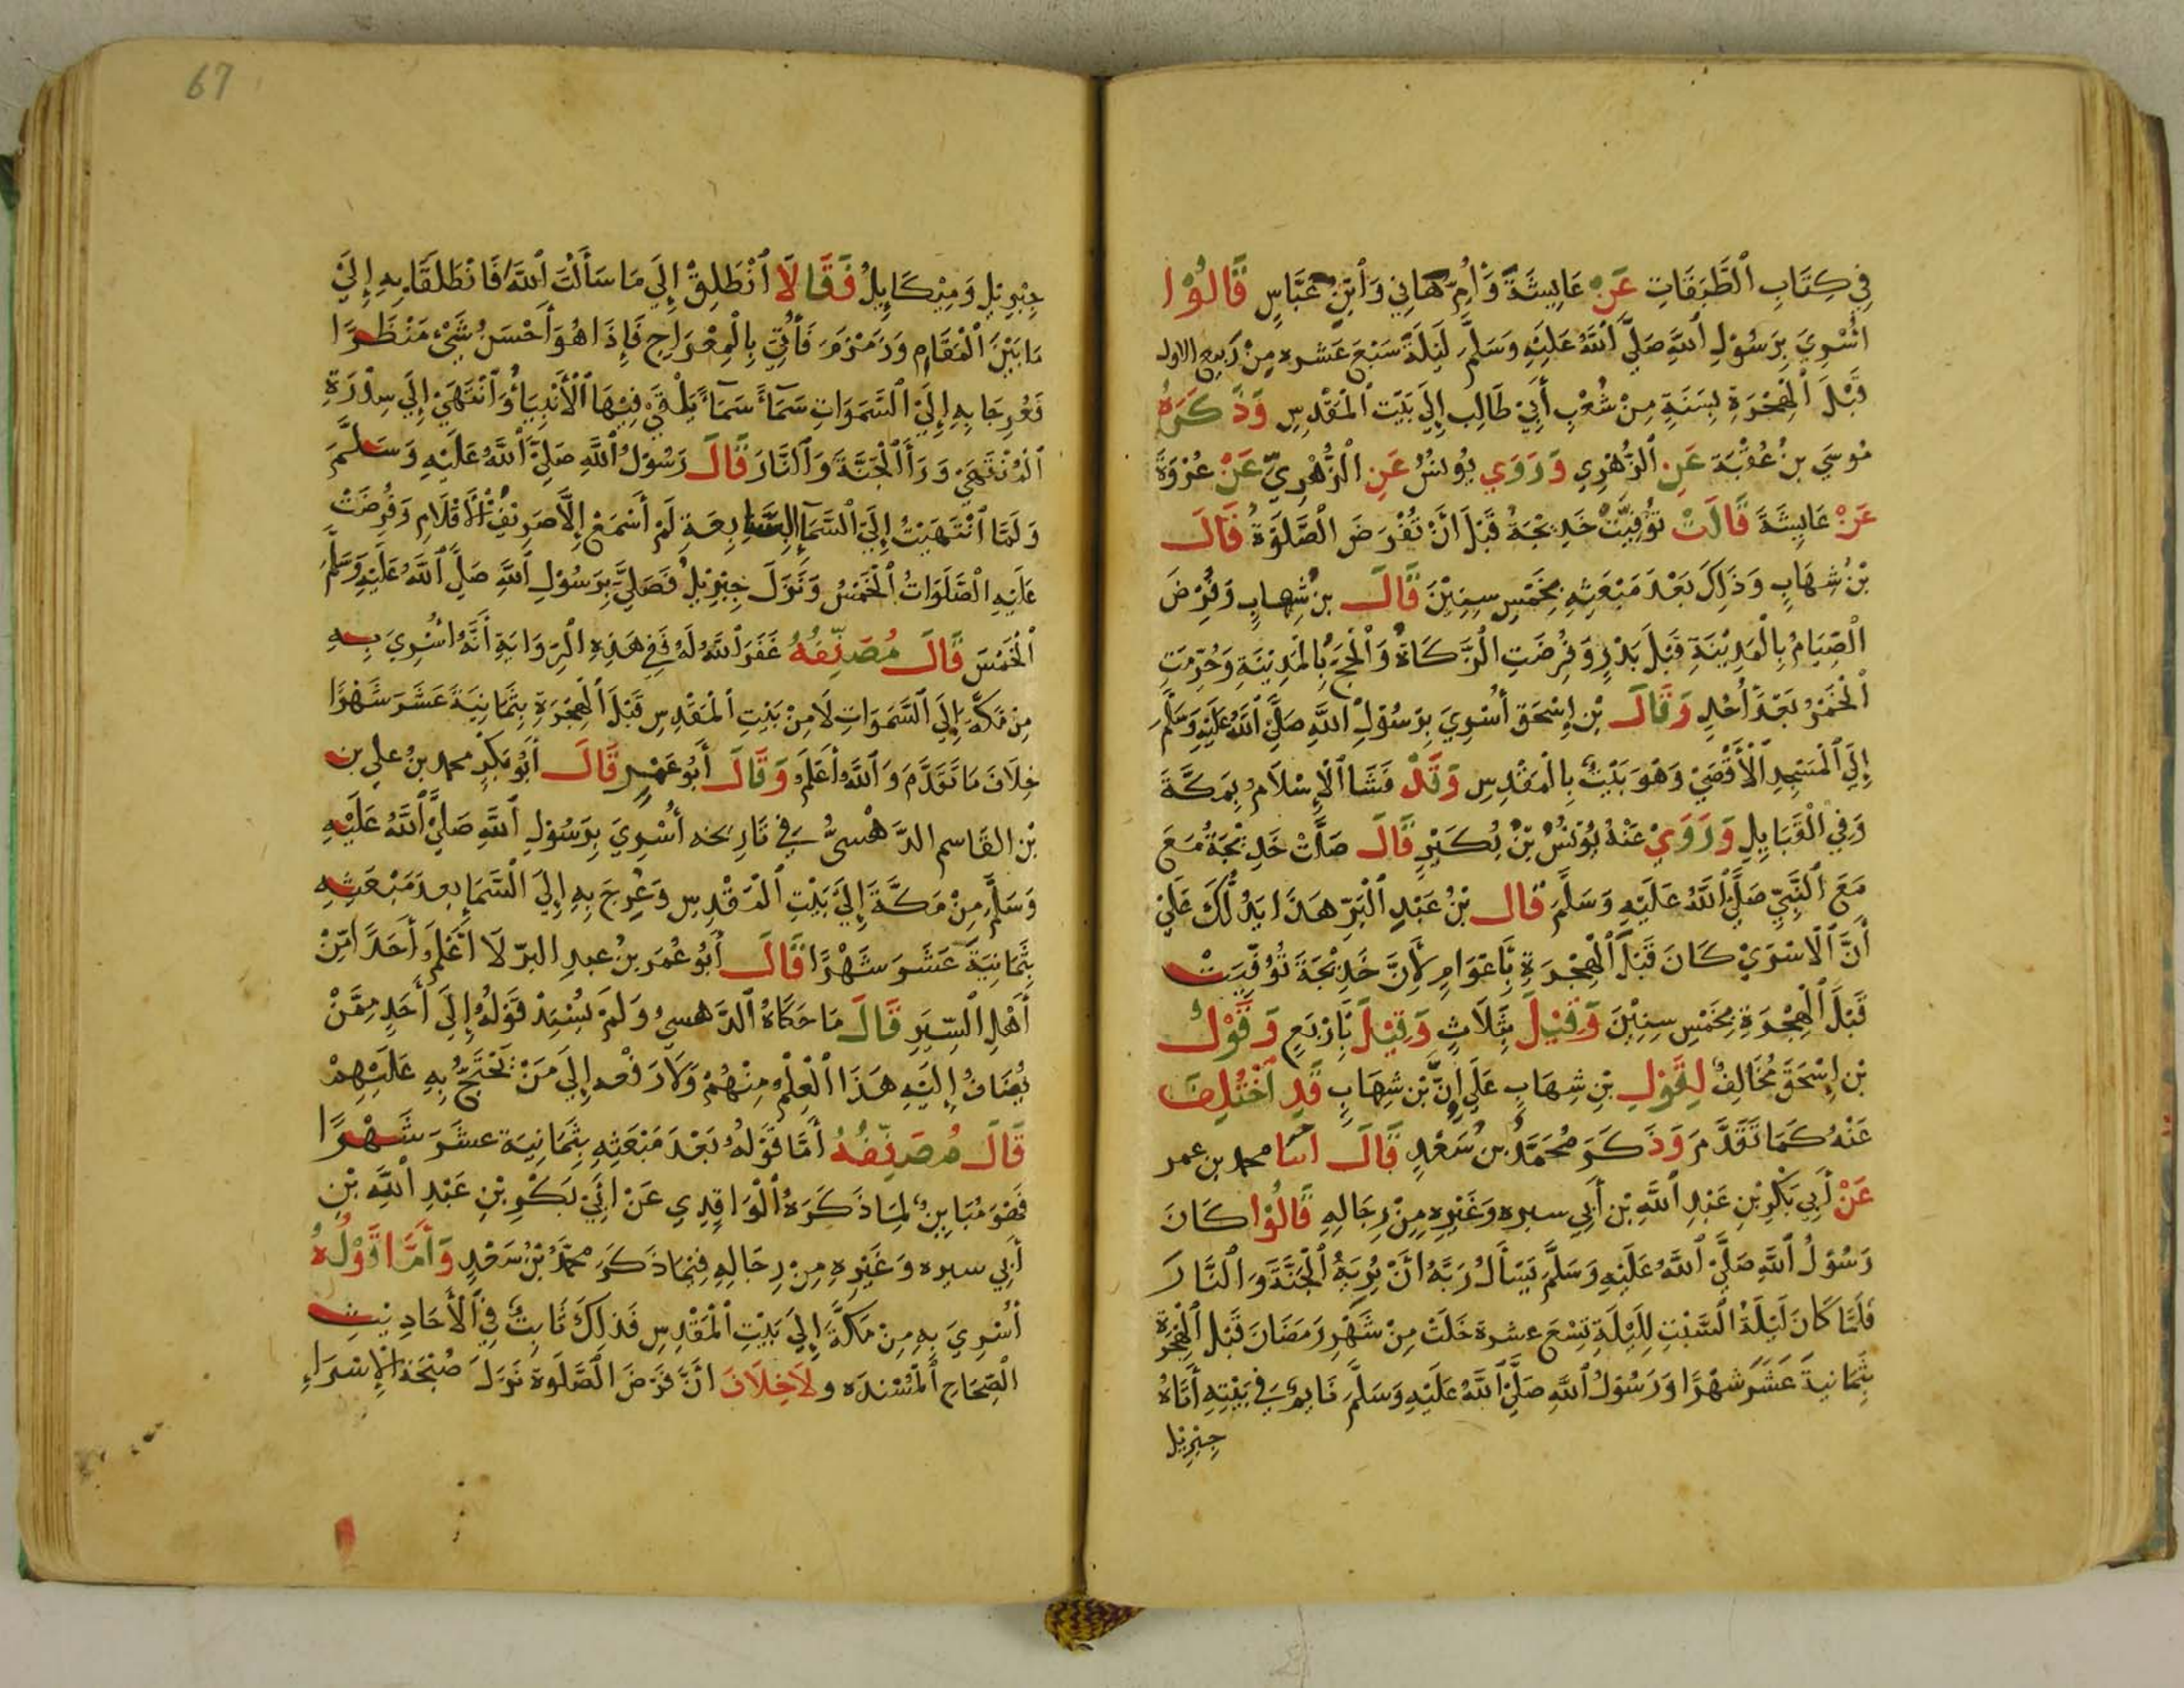 فِي كِتَابِ ٱلطَّبَقَاتِ عَنْ عَايِشَةَ وَأُمِّ هَانِي وَٱبْنِ عَبَّاسٍ قَالُوْا
اُسْرِيَ بِرَسُوْلِ ٱللَّهِ صَلَّيَ ٱللَّهُ عَلَيْهِ وَسَلَّمَ لَيْلَةَ سَبْعَ عَشره مِنْ رَبيع الاول
قَبْلَ ٱلْهِجْرَةِ بِسَنَةٍ مِنْ شُعْبِ أَبِيْ طَالِب إِلَي بَيْت ٱلْمَقْدِسِ وَذَكَرَهُ
مُوْسَي بنُ عُقْبَة عَنِ ٱلزُّهْرِي وَرَوَي يُوْنسُ عَنِ ٱلْزُّهْرِيِّ عَنْ عُرْوَةَ
عَنْ عَايِشَةَ قَالَتْ تُوُفِيَّتْ خَدِيْجَةُ قَبْلَ أَنْ تُفْرَضَ ٱلْصَّلَوةُ قَالَ
بْنُ شِهَابٍ وَذَلِكَ بَعْدَ مَبْعَثِهِ بِخَمْسِ سِنِيْنَ قَالَ بنُ شِهابٍ وَفُرِضَ
ٱلْصِّيَامُ بِالْمَدِيْنَةِ قَبْلَ بَدْرٍ وَفُرِضَتِ ٱلْزَّكَاةُ وَٱلْحَجُّ بِالْمَدِيْنَةِ وَحُرِّمَتِ
ٱلْخَمْرُ بَعْدَ أُحُدٍ وَقَالَ بْن إِسْحَقَ أُسْرِيَ بِرَسُوْلِ ٱللَّهِ صَلَّيَ ٱللَّهُ عَلَيْهِ وَسَلَّمَ
إِلَيَ ٱلْمَسْجِدِ ٱلْأَقْصَيْ وَهْوَ بَيْتُ بِالْمَقْدِسِ وَقَدْ فَشَا ٱلْإِسْلَامُ بِمَكَّةَ
وَفِي ٱلْقَبَايِلِ وَرَوَيْ عَنْهُ يُوْنُسُ بْنُ بُكَيْرٍ قَالَ صَلَّتْ خَدِيْجَةُ مَعَ
مَعَ ٱلنَّبِيِّ صَلَّيَ ٱللَّهُ عَلَيْهِ وَسَلَّمَ قال بْنُ عَبْدِ ٱلْبَرِّ هَذَا يَدُلُّكَ عَلَيْ
أَنَّ ٱلْاسْرَيْ كَانَ قَبْلَ ٱلْهِجْرَةِ بِأَعْوَامٍ لِأَنَّ خَدِيْجَةَ تُوُفِّيَتْ
قَبْلَ ٱلْهِجْرَةِ بِخَمْسِ سِنِيْنَ وَقِيْلَ بِثَلَاثٍ وَقِيْلَ بِأَرْبَعٍ وَقَوْلُ
بْن إِسْحَقَ مُخَالِفٌ لِقَوْلِ بْنِ شِهَابٍ عَلَي إِنَّ بْن شِهَابٍ قَدِ ٱخْتُلِفَ
عَنْهُ كَمَا تَقَدَّمَ وَذَكَرَ مُحَمَّدُ بنُ سَعْدٍ قَالَ انبا محمد بن عمر
عَنْ أَبِي بَكْرِ بْنِ عَبْدِ ٱللَّهِ بْن أَبِي سبره وَغَيْرِهِ مِنْ رِجَالِهِ قَالُوْا كَانَ
رَسُوْلُ ٱللَّهِ صَلَّيَ ٱللَّهُ عَلَيْهِ وَسَلَّمَ يَسْأَلُ رَبَّهُ أَنْ يُرِيَهُ ٱلْجَنَّةَ وَٱلنَّارَ
فَلَمَّا كَانَ لَيْلَةُ ٱلسَّبْتِ لِلَيْلَةٍ تِسْعَ عشرة خَلَتْ مِنْ شَهْرِ رَمَضَانَ قَبْل ٱلْهِجْرَةِ
بِثَمَانيةَ عَشَرَ شَهْرًا وَرَسُوْلُ ٱللَّهِ صَلَّيَ ٱللَّهُ عَلَيْهِ وَسَلَّمَ نَايِمٌ فِي بَيْتِهِ أَتَاهُ
جِبْرِيْل
67
جِبْرِيْل وَمِيْكَايِيلُ فَقَالَا ٱنْطَلِقْ إِلَي مَا سَأَلْتَ ٱللَّهَ فَانْطَلَقَا بِهِ إِلَيَ
مَا بَيْنَ ٱلْمَقَامِ وَزَمْزَمَ فَأُتِيَ بِالْمِعْرَاجِ فَإِذَا هُوَ أَحْسَنُ شَيْءٍ مَنْظَرًا
فَعُرِجَا بِهِ إِلَيَ ٱلسَّمَوَاتِ سَمَآءً سَمَآءً يَلْقَيْ فِيْهَا ٱلْأَنْبِيَاءُ وَٱنْتَهَيْ إِلَي سِدْرَةِ
ٱلْمُنْتَهَيْ وَرَأَ ٱلْجَنَّةَ وَٱلنَّارَ قَالَ رَسُوْلُ ٱللَّهِ صَلَّيَ ٱللَّهُ عَلَيْهِ وَسَلَّمَ
وَلَمَّا ٱنْتَهَيْتُ إِلَيَ ٱلسَّمَآءِ السَّابِعَةِ لَمْ أَسْمَعْ إِلَّا صَرِيْفَ ٱلْأَقْلَامِ وَفُرِضَتْ
عَلَيْهِ ٱلْصَّلَوَاتُ ٱلْخَمْسُ وَنَزَلَ جِبْرِيْلُ فَصَلَّيَ بِرَسُوْلِ ٱللَّهِ صَلَّيَ ٱللَّهُ عَلَيْهِ وَسَلَّمَ
ٱلْخَمْسَ قَالَ مُصَنِّفُهُ غَفَرَ ٱللَّهُ لَهُ فَفِي هَذِهِ ٱلْرِّوَايَةِ أَنَّهُ اُسْرِيَ بِهِ
مِنْ مَكَّةَ إِلَيَ ٱلسَّمَوَاتِ لَا مِنْ بَيْتِ ٱلْمَقْدِسِ قَبْلَ ٱلْهِجْرَةِ بِثَمَانِيَةَ عَشَرَ شَهْرًا
خِلَافَ مَا تَقَدَّمَ وَٱللَّهُ أَعْلَمُ وَقَالَ أَبُو عَمْرٍ قَالَ أَبُو بَكْرِ محمد بنُ علي بن
بْن القَاسِم الذَّهْبيُّ فِي تَارِيخه أُسْرِيَ بِرَسُوْلِ ٱللَّهِ صَلَّيَ ٱللَّهُ عَلَيْهِ
وَسَلَّمَ مِنْ مَكَّةَ إِلَيَ بَيْتِ ٱلْمَقْدِسِ وَعُرِجَ بِهِ إِلَيَ ٱلْسَّمَاءِ بعدَ مَبْعَثِهِ
بِثَمَانِيَةَ عَشَرَ شَهْرًا قَالَ أَبُو عُمَرَ بنُ عبدِ البرّ لَا أَعْلَمُ أَحَدًا مِّنْ
أَهْلِ ٱلْسِّيَرِ قَالَ مَا حَكَاهُ ٱلذَّهبيُ وَلَمْ يُسْنِدْ قَوْلَهُ إِلَيَ أَحَدٍ مِمَّنْ
يُضَافُ إِلَيْهِ هَذَا ٱلْعِلْمُ مِنْهُمْ وَلَا رَفْعه إِلَي مَنْ يَحْتَجُّ بِهِ عَلَيْهِمْ
قَالَ مُصَنِّفُهُ أَمَّا قَوْلُهُ بَعْدَ مَبْعَثِهِ بِثَمَانِيَة عشَرَ شَهْرًا
فَهُوَ مُبَايِنٌ لِمَا ذَكَرَهُ ٱلْوَاقِدِي عَنْ أَبِيْ بَكْرِ بْنِ عَبْدِ ٱللَّهِ بْنِ
أَبِي سبره وَغَيْرِهِ مِنْ رِجَالِهِ فِيْمَا ذَكَرَ مُحَمَّدُ بْنُ سَعْدٍ وَأَمَّا قَوْلُهُ
أُسْرِيَ بِهِ مِنْ مَكَّةَ إِلَيَ بَيْتِ ٱلْمَقْدِسِ فَذلِكَ ثَابِتٌ فِي ٱلْأَحَادِيْثِ
ٱلْصِّحَاحِ ٱلْمُسْنَدَه وَلَاخِلَافَ أنَّ فَرْضَ ٱلصَّلَوة نَزَلَ صُبْحَةَ ٱلْإِسْرَاءِ